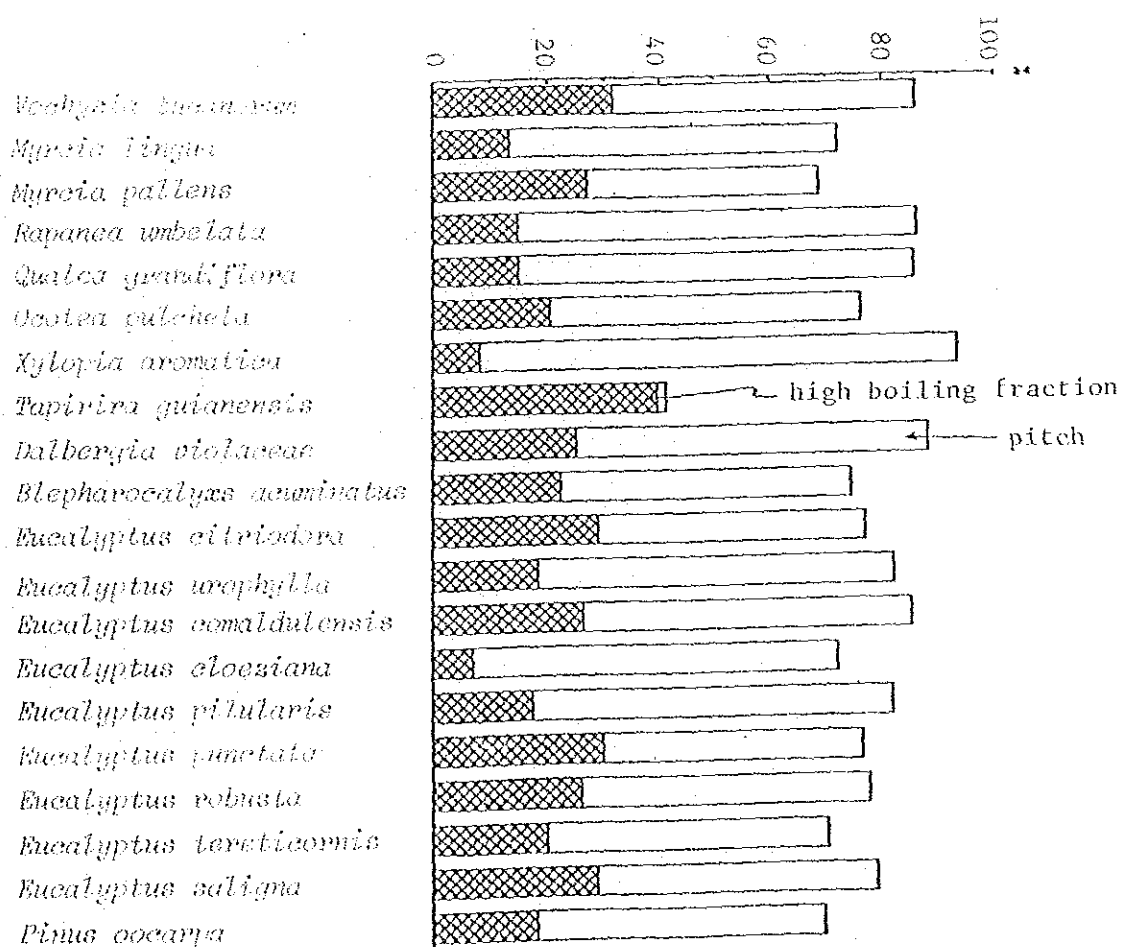 0 20 40 60 80 100 %
Myrcia lingua
Myrcia pallens
Rapanea umbelata
Qualea grandiflora
Ocotea pulchela
Xylopia aromatica
Tapirira guianensis
high boiling fraction
Dalbergia violaceae
pitch
Blepharocalyxs acuminatus
Eucalyptus citriodora
Eucalyptus urophylla
Eucalyptus comaldulensis
Eucalyptus cloeziana
Eucalyptus pilularis
Eucalyptus punctata
Eucalyptus robusta
Eucalyptus tereticornis
Eucalyptus saligna
Pinus oocarpa